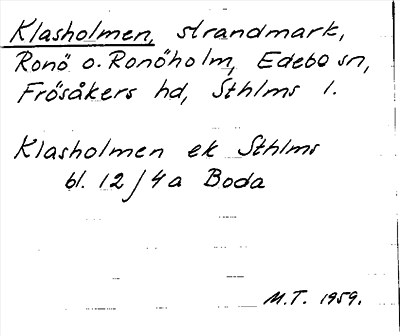 Klasholmen, strandmark,
Ronö o. Ronöholm, Edebo sn,
Frösåkers hd, Sthlms l.
Klasholmen ek Sthlms
bl. 12/4a Boda
M.T. 1959.